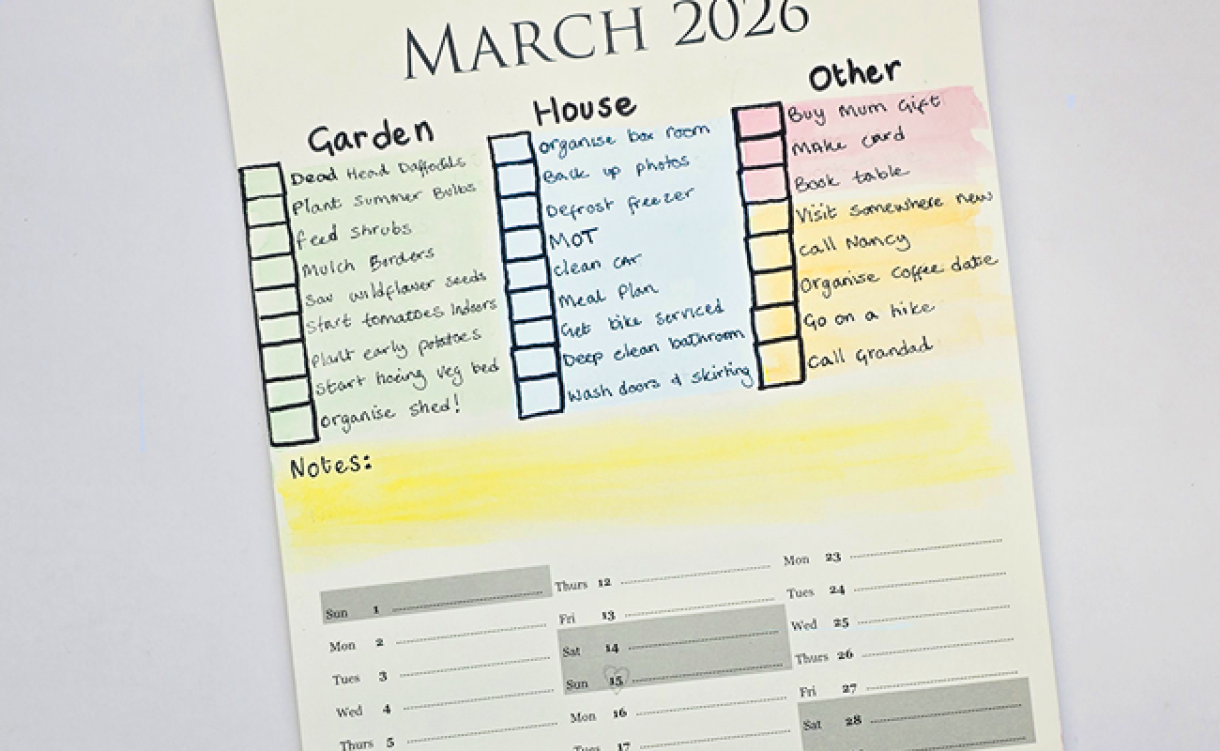 MARCH 2026
Garden
Dead Head Daffodils
Plant Summer Bulbs
feed shrubs
Mulch Borders
Sow wildflower seeds
Start tomatoes Indoors
Plant early potatoes
Start hoeing veg bed
organise shed!
House
organise box room
Back up photos
Defrost freezer
MOT
clean car
Meal Plan
Get bike serviced
Deep clean bathroom
Wash doors & skirting
Other
Buy Mum Gift
Make card
Book table
Visit somewhere new
Call Nancy
Organise coffee date
Go on a hike
Call Grandad
Notes:
Sun 1
Mon 2
Tues 3
Wed 4
Thurs 5
Thurs 12
Fri 13
Sat 14
Sun 15
Mon 16
Tues 17
Mon 23
Tues 24
Wed 25
Thurs 26
Fri 27
Sat 28